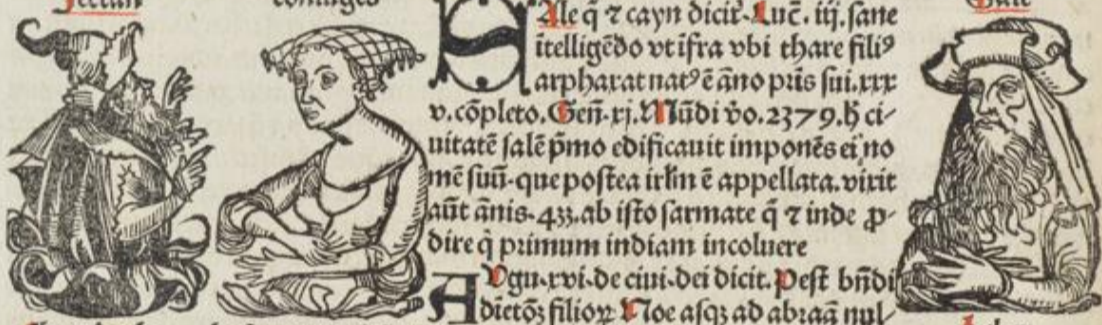 coniuges
Sale
SAle q̃ ⁊ cayn dicit᷑. Luc̃. iij. sane
ītelligēdo vt īfra vbi thare filiꝰ
arphaxat natꝰ ē āno pr̃is sui.xxx
v. cōpleto. Geñ. xj. Mūdi ṽo. 2379. h̄ ci⸗
uitatē salē pͥmo edificauit imponēs ei no
mē suū. que postea irl̃m ē appellata. vixit
aūt ãnis. 433. ab isto sarmate q̃ ⁊ inde ꝓ⸗
dire q̇ primum indiam incoluere
AUgu. xvi. de ciui. dei dicit. Pest bñdi
dictōꝫ filioꝝ Noe asqꝫ ad abraā nul⸗